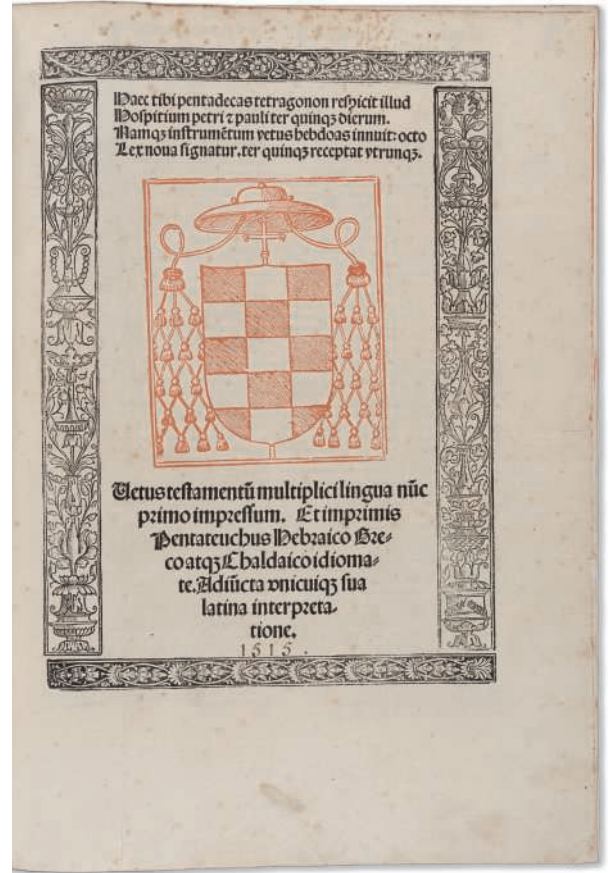 Haec tibi pentadecas tetragonon respicit illud
Hospitium petri ⁊ pauli ter quinqꝫ dierum.
Namqꝫ instrumētum vetus hebdoas innuit: octo
Lex noua signatur. ter quinqꝫ receptat vtrunqꝫ.
Uetus testamentū multiplici lingua nūc
primo impressum. Et imprimis
Pentateuchus Hebraico Gre-
co atqꝫ Chaldaico idioma-
te. Adiūcta vnicuiqꝫ sua
latina interpreta-
tione.
1515.